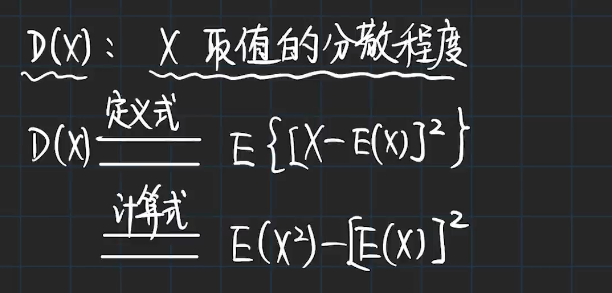 D(X): X 取值的分散程度
D(X) 定义式 E{[X-E(X)]²}
计算式 E(X²)-[E(X)]²